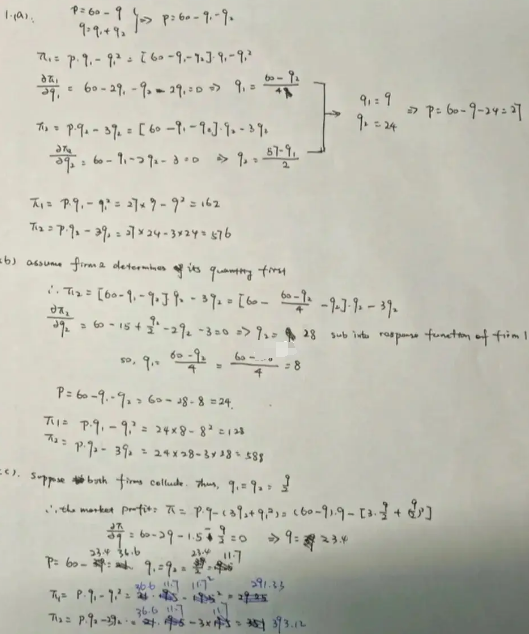 1.(a). p=60-q
q=q₁+q₂ } => p=60-q₁-q₂
π₁=p·q₁-q₁²=[60-q₁-q₂]·q₁-q₁²
∂π₁/∂q₁=60-2q₁-q₂-2q₁=0 => q₁=(60-q₂)/4
q₁=9
q₂=24 => p=60-9-24=27
π₂=p·q₂-3q₂=[60-q₁-q₂]·q₂-3q₂
∂π₂/∂q₂=60-q₁-2q₂-3=0 => q₂=(57-q₁)/2
π₁=p·q₁-q₁²=27×9-9²=162
π₂=p·q₂-3q₂=27×24-3×24=576
b) assume firm 2 determines its quantity first
∴π₂=[60-q₁-q₂]q₂-3q₂=[60-(60-q₂)/4-q₂]·q₂-3q₂
∂π₂/∂q₂=60-15+q₂/2-2q₂-3=0 => q₂=28 sub into response function of firm 1
so, q₁=(60-q₂)/4=(60-...)/4=8
P=60-q₁-q₂=60-28-8=24.
π₁=p·q₁-q₁²=24×8-8²=128
π₂=p·q₂-3q₂=24×28-3×28=588
(c). Suppose both firms collude. Thus, q₁=q₂=q/2
∴the market profit: π=p·q-(3q₂+q₁²)=(60-q)·q-[3·q/2+(q/2)²]
∂π/∂q=60-2q-1.5-q/2=0 => q=23.4
p=60-23.4=36.6 q₁=q₂=23.4/2=11.7
π₁=p·q₁-q₁²=36.6·11.7-11.7²=291.33
π₂=p·q₂-3q₂=36.6·11.7-3×11.7=393.12